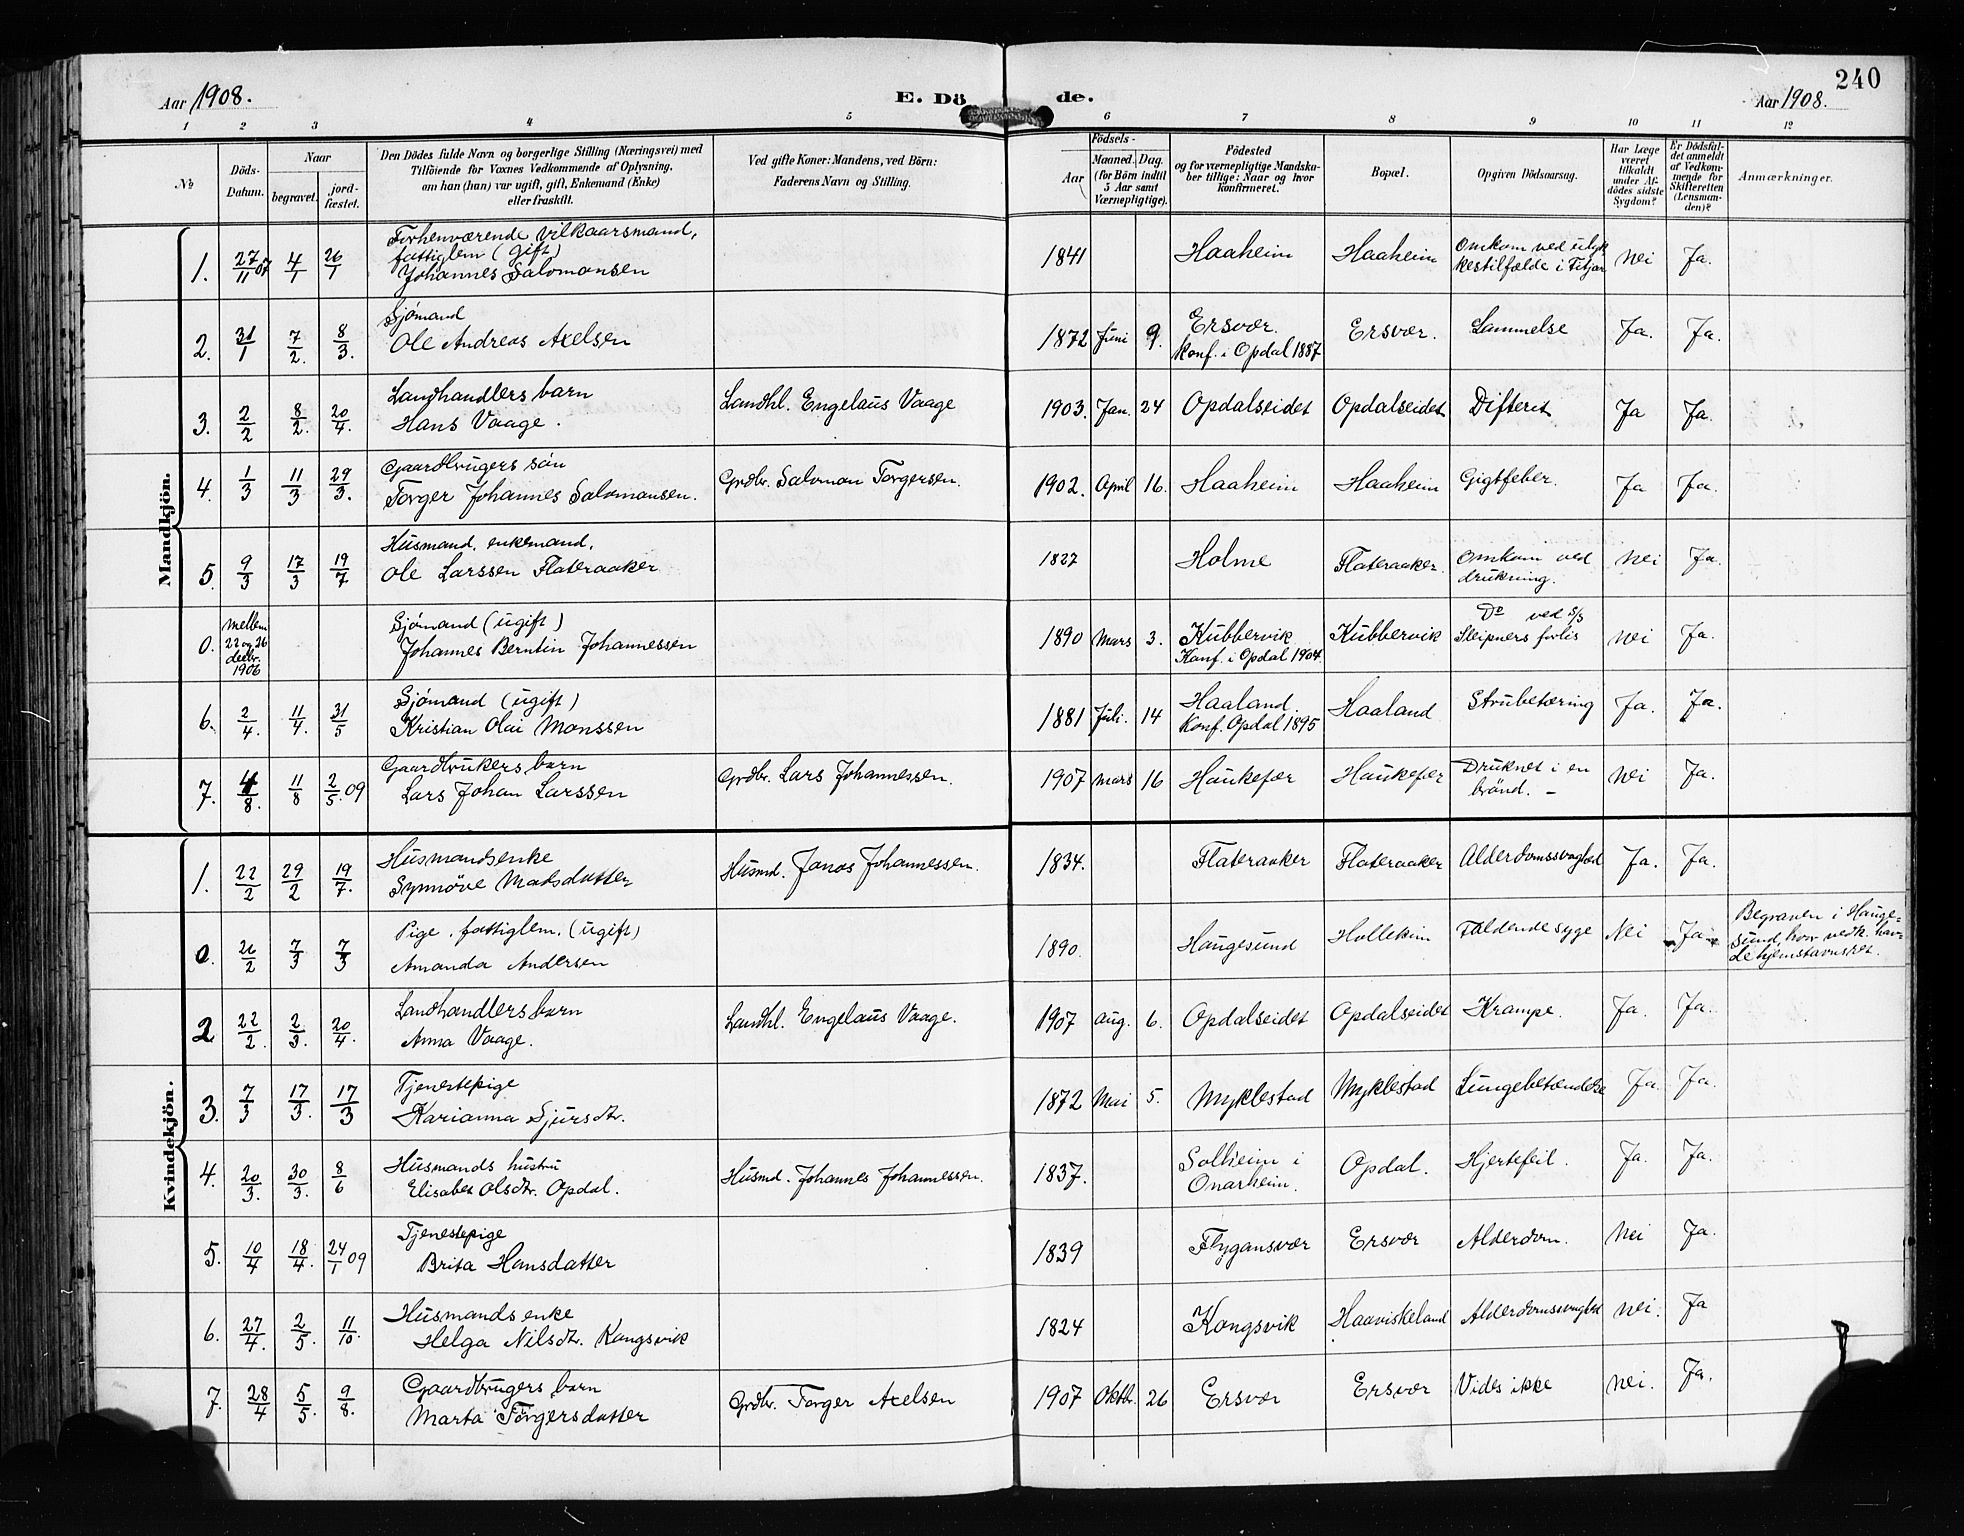 240
Aar 1908. E. Dö de. Aar 1908.
1 2 3 4 5 6 7 8 9 10 11 12
No
Döds-Datum.
Naar
begravet.
jord-fæstet.
Den Dödes fulde Navn og borgerlige Stilling (Næringsvei) med
Tilföiende for Voxnes Vedkommende af Oplysning,
om han (hun) var ugift, gift, Enkemand (Enke)
eller fraskilt.
Ved gifte Koner: Mandens, ved Börn:
Faderens Navn og Stilling.
Födsels-
Aar
Maaned. Dag.
(for Börn indtil
5 Aar samt
Værnepligtige).
Födested
og for værnepligtige Mandska-
ber tillige: Naar og hvor
konfirmeret.
Bopæl.
Opgiven Dödsaarsag.
Har Læge
været
tilkaldt
under Af-
dödes sidste
Sygdom?
Er Dödsfal-
det anmeldt
af Vedkom-
mende for
Skifteretten
(Lensman-
den)?
Anmærkninger.
Mandkjön.
1. 27/11 07 4/1 26/1 Forhenværende vilkaarsmand,
fattiglem (gift)
Johannes Salomonsen 1841 Haaheim Haaheim Omkom ved ulyk
kestilfælde i Fitjar Nei Ja.
2. 31/1 7/2. 8/3. Sjömand
Ole Andreas Axelsen 1872 Juni 9. Ersvær.
Konf. i Opdal 1887 Ersvær. Lammelse Ja. Ja.
3. 2/2 8/2. 20/4. Landhandlers barn
Hans Vaage. Landhl. Engelaus Vaage 1903. Jan. 24 Opdalseidet Opdalseidet Difterit Ja Ja.
4. 1/3 11/3 29/3. Gaardbrugers sön
Torger Johannes Salomonsen. Grdbr. Salomon Torgersen. 1902. April 16. Haaheim Haaheim Gigtfeber. Ja Ja.
5 9/3 17/3 19/7 Husmand, enkemand.
Ole Larssen Flateraaker 1827 Holme Flateraaker. Omkom ved
drukning. Nei Ja.
0. mellem
22 og 26
decbr.
1906 Sjömand (ugift)
Johannes Berntin Johannessen 1890 Mars 3. Kubbervik
Konf. i Opdal 1904. Kubbervik Do ved S/S
Sleipners forlis Nei Ja.
6. 2/4. 11/4. 31/5 Sjömand (ugift)
Kristian Olai Monssen 1881 Juli. 14 Haaland.
Konf. Opdal 1895 Haaland Strubetæring Ja. Ja.
7. 4/8. 11/8 2/5. 09 Gaardbrukers barn
Lars Johan Larssen Grdbr. Lars Johannessen. 1907 Mars 16 Haukefær Haukefær Druknet i en
brönd. - Nei Ja.
Kvindekjön.
1. 22/2 29/2 19/7. Husmandsenke
Synnöve Matsdatter Husmd. Jonas Johannessen. 1834. Flateraaker Flateraaker Alderdomssvaghed Ja. Ja.
0. 26/2 7/3 7/3 Pige, fattiglem, (ugift)
Amanda Andersen 1890. Haugesund Hollekim Faldende syge Nei Ja Begraven i Hauge-
sund, hvor vedk. hav-
de hjemstavnsret.
2 22/2. 2/3. 20/4. Landhandlers barn
Anna Vaage. Landhl. Engelaus Vaage. 1907 Aug. 6. Opdalseidet Opdalseidet Krampe. Ja. Ja.
3. 7/3 17/3. 17/3 Tjenestepige
Karianna Sjursdtr. 1872 Mai 5. Myklestad Myklestad Lungebetændelse Ja. Ja.
4. 20/3. 30/3. 8/6 Husmands hustru
Elisabet Olsdtr. Opdal. Husmd. Johannes Johannessen. 1837. Solheim i
Onarheim. Opdal. Hjertefeil. Ja. Ja.
5. 10/4 18/4. 24/1 09 Tjenestepige
Brita Hansdatter 1839 Flygansvær Ersvær Alderdom. Nei Ja.
6. 27/4. 2/5. 11/10. Husmands enke
Helga Nilsdtr. Kongsvik 1824 Kongsvik Haaviskeland Alderdomssvaghed Nei. Ja
7. 28/4 5/5. 9/8. Gaardbrugers barn
Marta Torgersdatter Grdbr. Torger Axelsen 1907 Oktbr. 26 Ersvær Ersvær Vides ikke Nei. Ja.